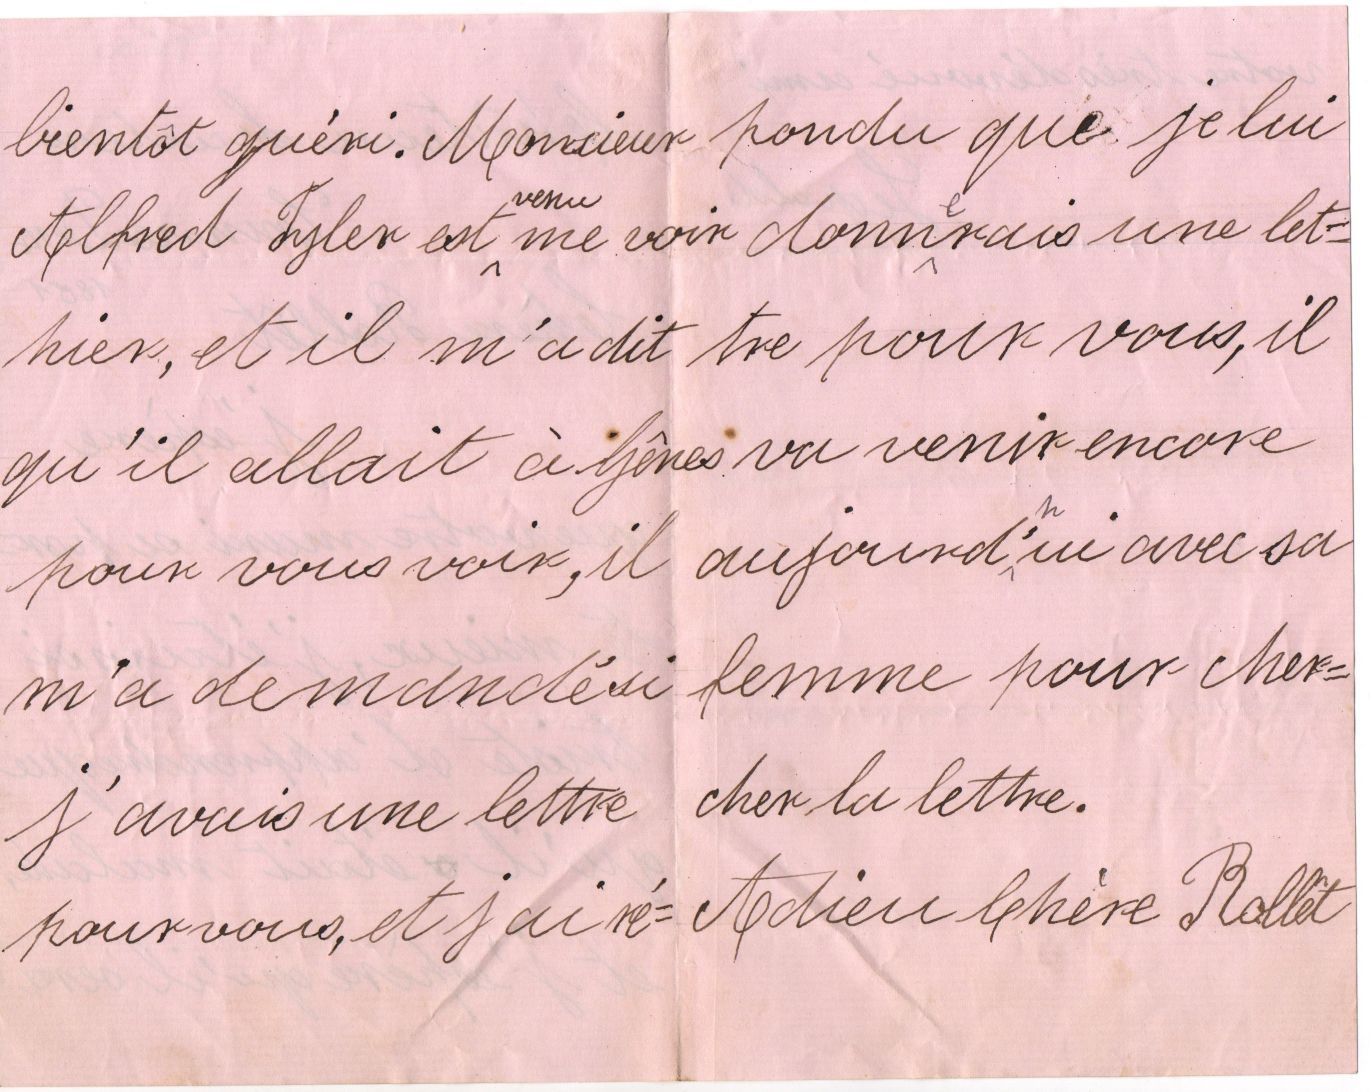 bientôt guéri. Monsieur
Alfred Tyler est venu me voir
hier, et il m'a dit
qu'il allait à Gênes
pour vous voir, il
m'a demandé si
j'avais une lettre
pour vous, et j'ai ré=
pondu que je lui
donnerais une let=
tre pour vous, il
va venir encore
aujourd'hui avec sa
femme pour cher=
cher la lettre.
Adieu Chère